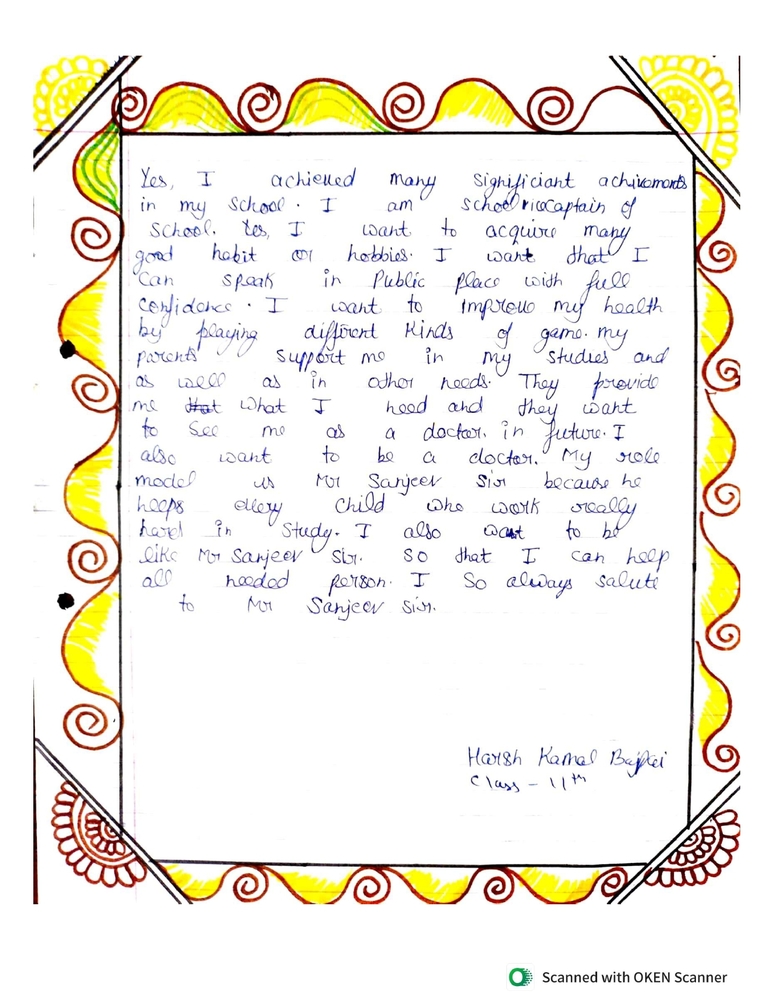 Yes, I achieved many significiant achivements
in my school. I am school vicecaptain of
school. Yes, I want to acquire many
good habit or hobbies. I want that I
can speak in Public place with full
confidence. I want to improve my health
by playing different kinds of game. my
parents support me in my studies and
as well as in other needs. They provide
me that what I need and they want
to see me as a doctor. in future. I
also want to be a doctor. My role
model is Mr Sanjeev Sir because he
helps every child who work really
hard in study. I also want to be
like Mr Sanjeev Sir. So that I can help
all needed person. I so always salute
to Mr Sanjeev Sir.
Harsh Kamal Bajpai
Class - 11th
Scanned with OKEN Scanner